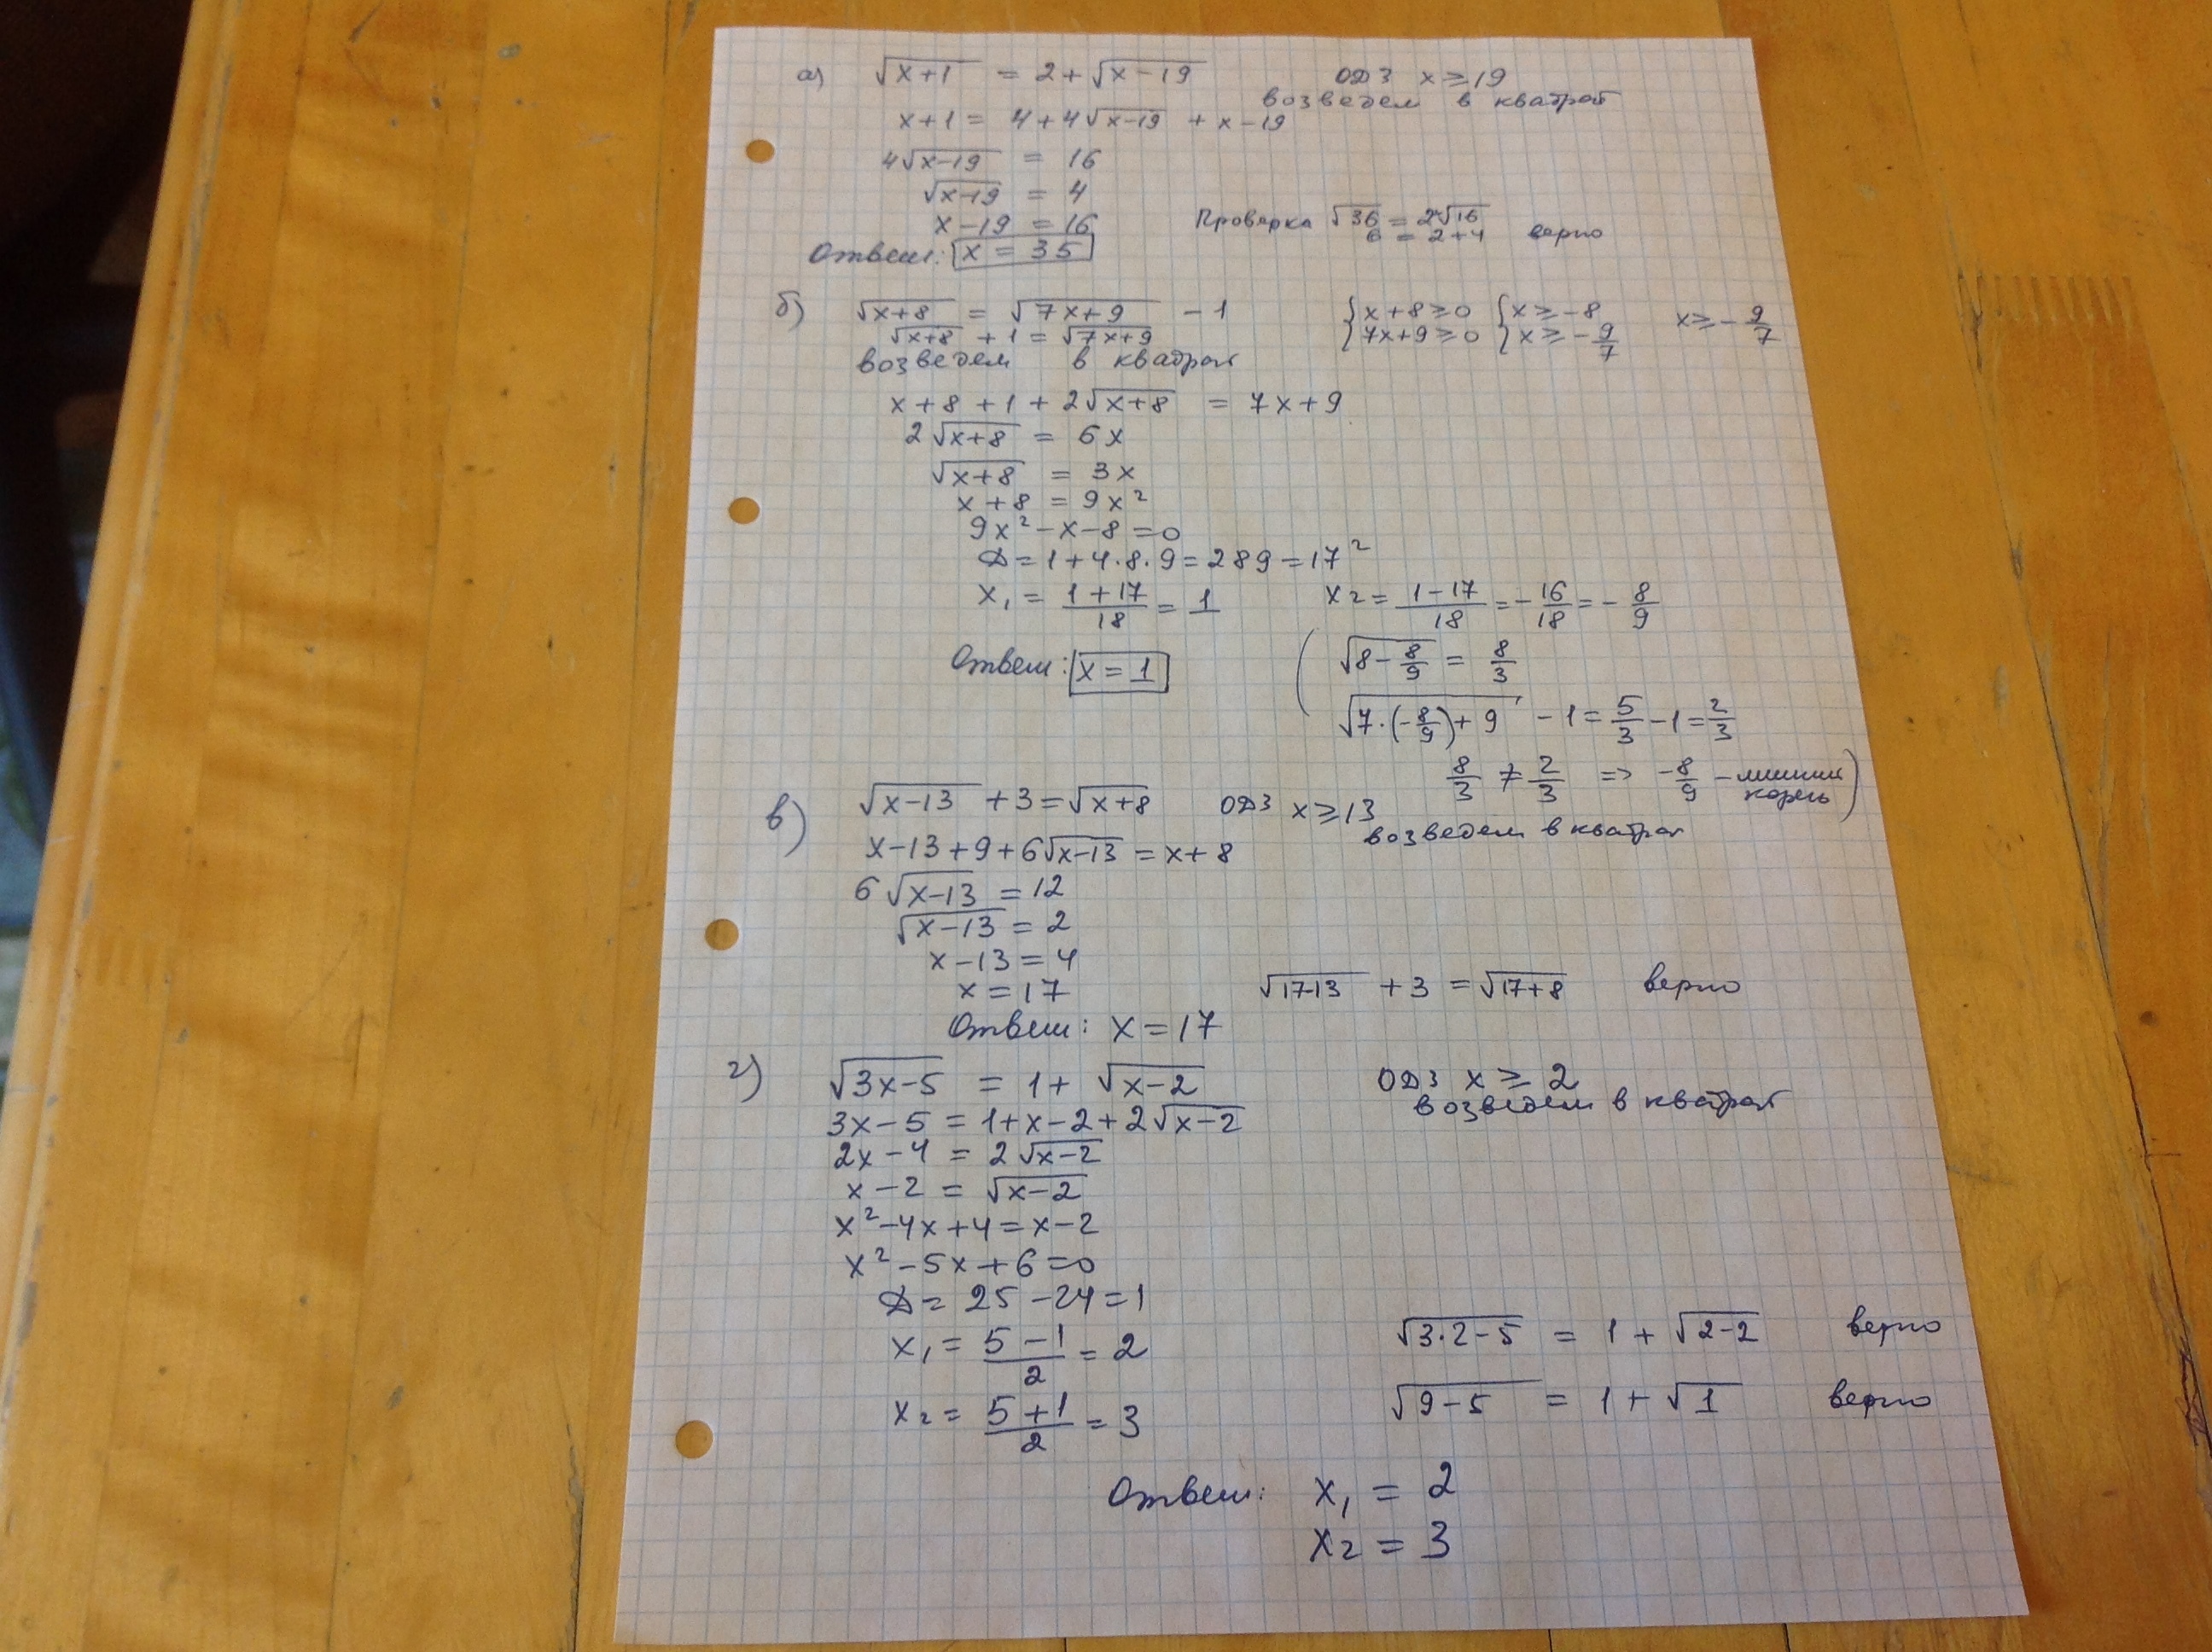 а) √(x+1) = 2 + √(x−19) ОДЗ x ≥ 19
возведем в квадрат
x+1 = 4+4√(x−19) + x−19
4√(x−19) = 16
√(x−19) = 4
x−19 = 16 Проверка √36 = 2+√16
6 = 2+4 верно
Ответ: x = 35
б) √(x+8) = √(7x+9) − 1 {x+8≥0 {x ≥ −8 x ≥ −9/7
√(x+8) + 1 = √(7x+9) {7x+9≥0 {x ≥ −9/7
возведем в квадрат
x+8+1+2√(x+8) = 7x+9
2√(x+8) = 6x
√(x+8) = 3x
x+8 = 9x²
9x²−x−8=0
D=1+4·8·9=289=17²
x₁ = (1+17)/18 = 1 x₂ = (1−17)/18 = −16/18 = −8/9
Ответ: x = 1 (√(8−8/9) = 8/3
√(7·(−8/9)+9) −1 = 5/3 −1 = 2/3
8/3 ≠ 2/3 => −8/9 − лишний корень)
в) √(x−13) +3 = √(x+8) ОДЗ x ≥ 13
возведем в квадрат
x−13+9+6√(x−13) = x+8
6√(x−13) = 12
√(x−13) = 2
x−13 = 4
x = 17 √(17-13) + 3 = √(17+8) верно
Ответ: x = 17
г) √(3x−5) = 1 + √(x−2) ОДЗ x ≥ 2
возведем в квадрат
3x−5 = 1+x−2+2√(x−2)
2x−4 = 2√(x−2)
x−2 = √(x−2)
x²−4x+4 = x−2
x²−5x+6=0
D= 25−24=1
x₁ = (5−1)/2 = 2 √(3·2−5) = 1 + √(2−2) верно
x₂ = (5+1)/2 = 3 √(9−5) = 1 + √1 верно
Ответ: x₁ = 2
x₂ = 3